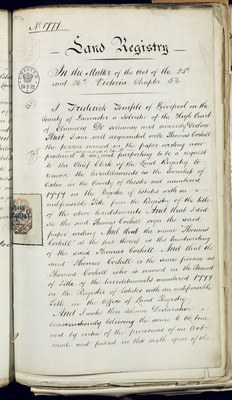 No 1777
Land Registry
In the Matter of the Act of the 25th
and 26th Victoria Chapter 53.
I Frederick Temple of Liverpool in the
County of Lancaster a Solicitor of the High Court
of Chancery Do solemnly and sincerely declare
that I am well acquainted with Thomas Cockell
the person named in the paper writing now
produced to me and purporting to be a request
to the Chief Clerk of the Land Registry to
remove the hereditaments in the township of
in the County of Chester and numbered
1777 in the Register of Estates with an
indefeasible Title from the Register of the title
of the above hereditaments And that I saw
the said Thomas Cockell sign the said
paper writing And that the name Thomas
Cockell at the foot thereof is the handwriting
of the said Thomas Cockell And that the
said Thomas Cockell is the same person as
Thomas Cockell who is named in the Record
of Title of the hereditaments numbered 1777
on the Register of Estates with an indefeasible
Title in the Office of Land Registry
And I make this solemn Declaration
conscientiously believing the same to be true
and by virtue of the provisions of an Act
made and passed in the sixth year of the